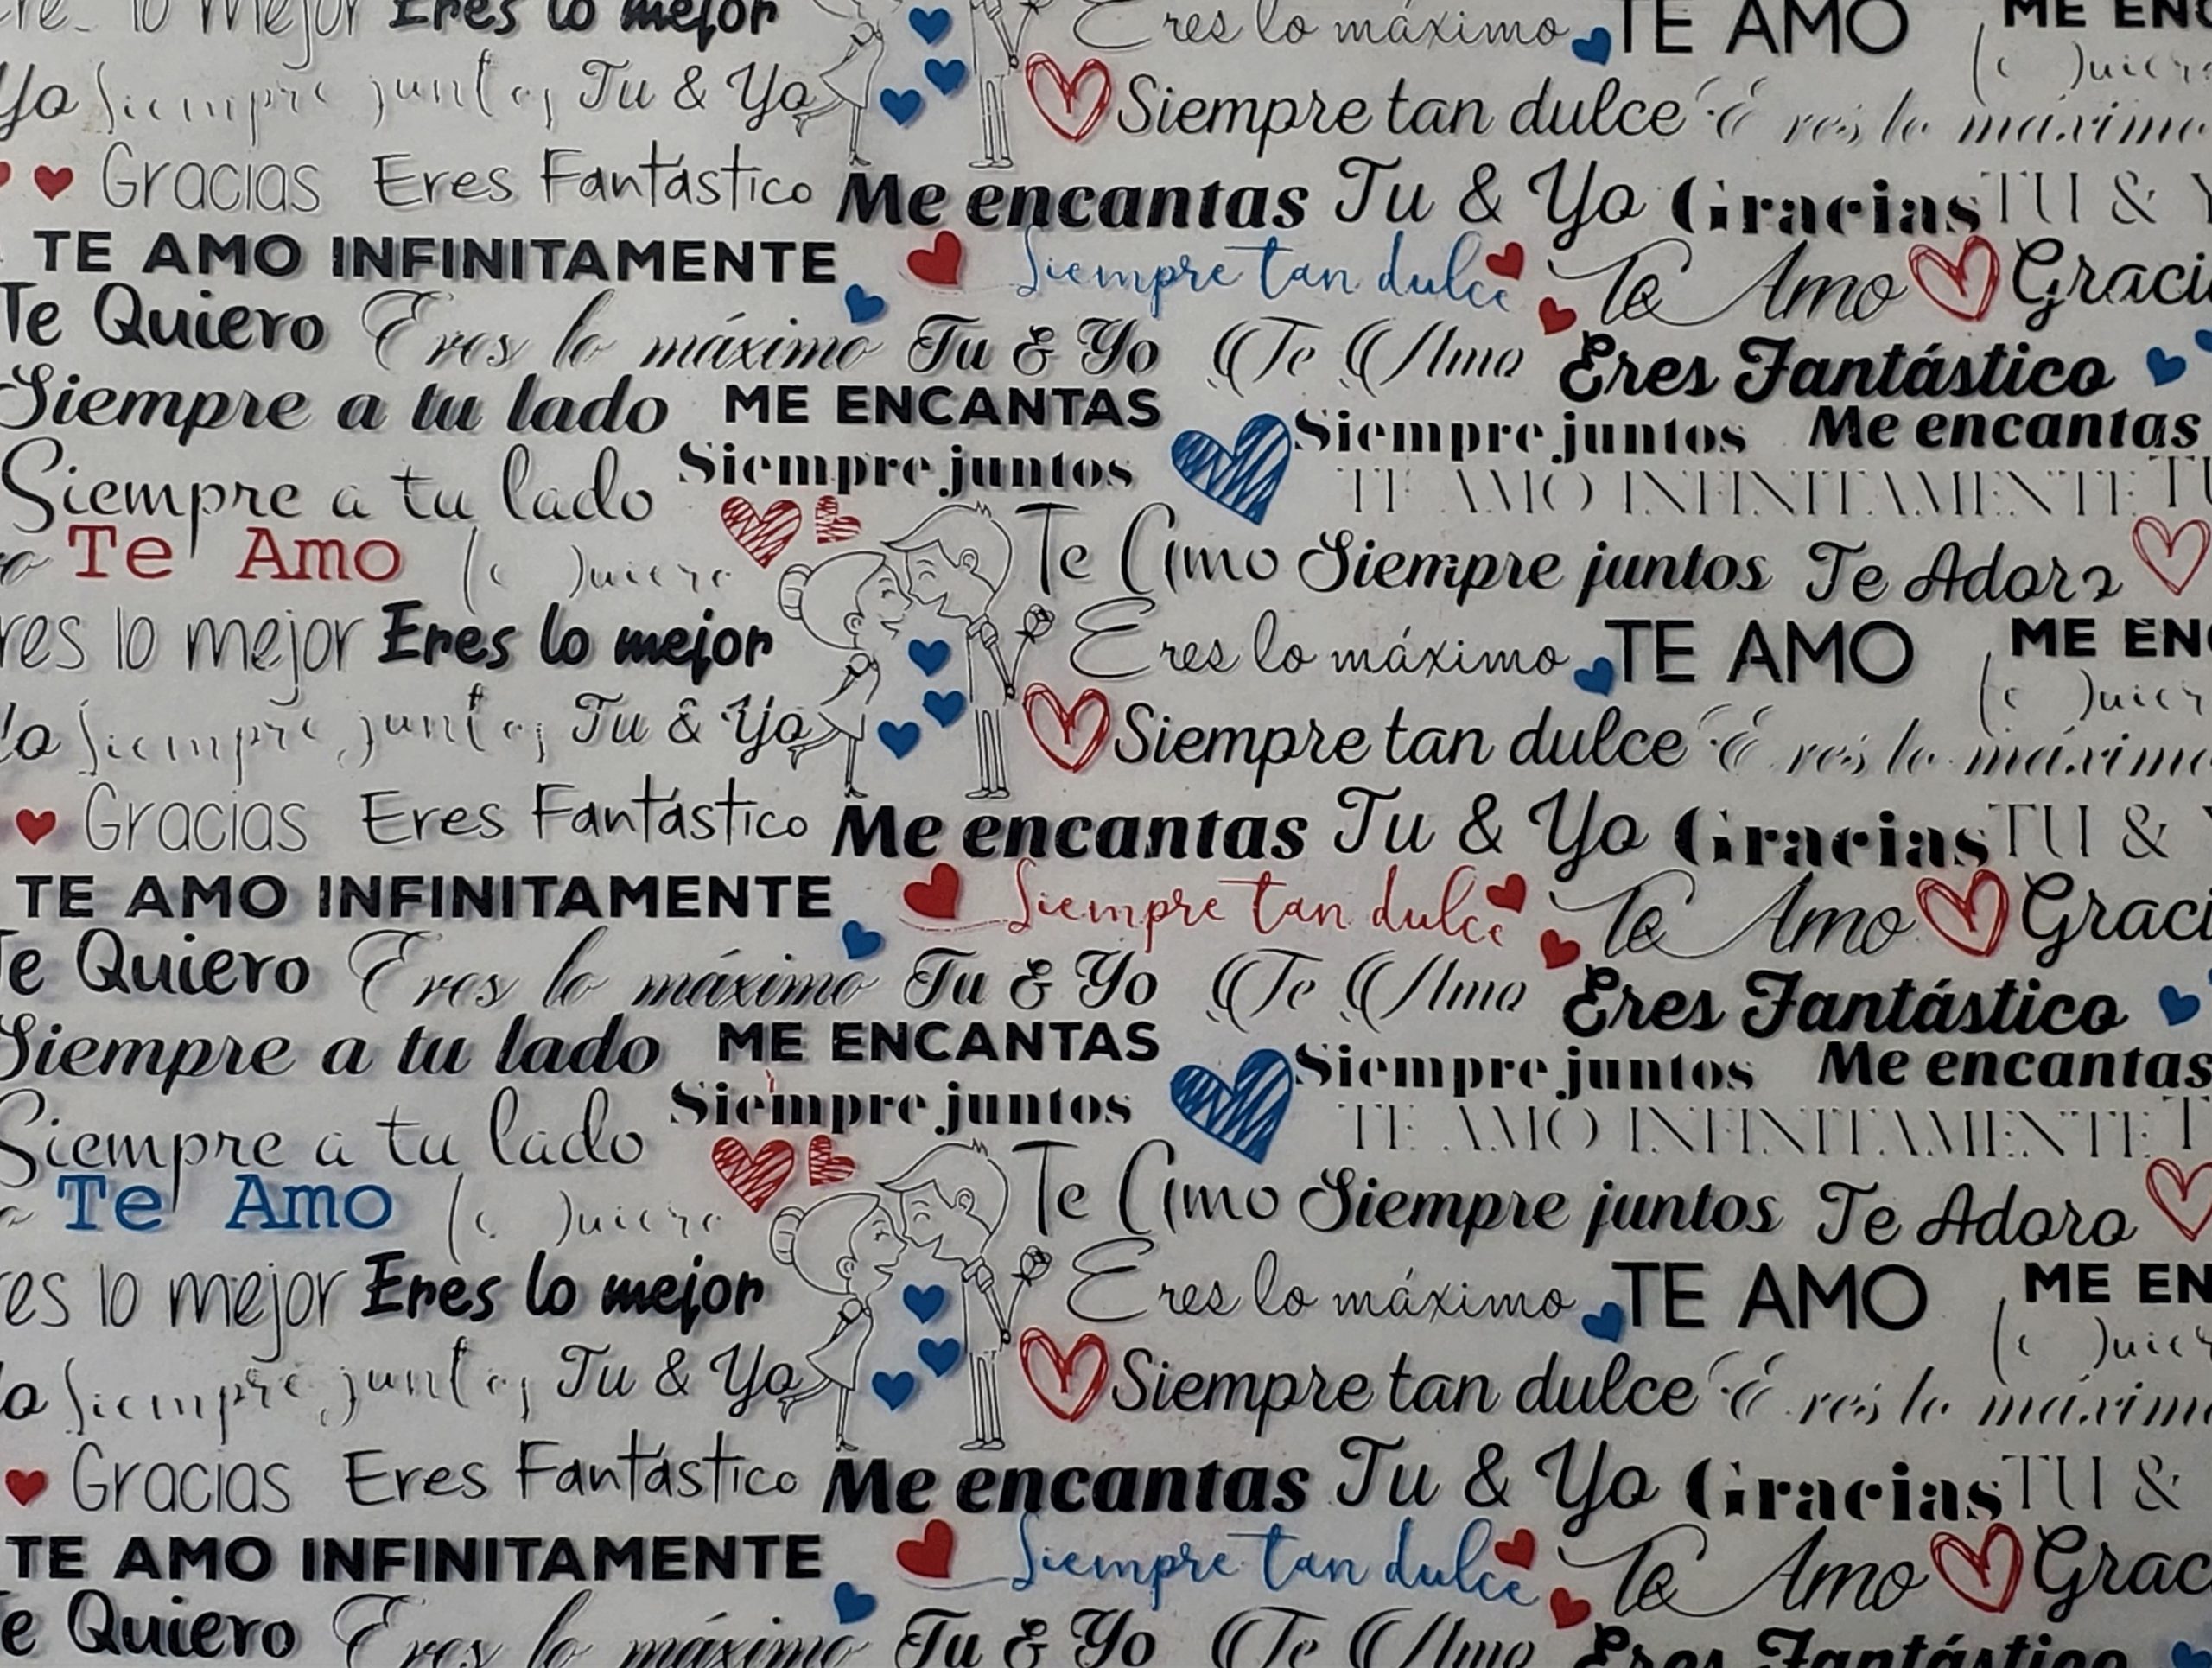 lo mejor Eres lo mejor Eres lo máximo TE AMO ME EN
Yo Siempre juntos Tu & Yo Te Quiero
Siempre tan dulce Eres lo máximo
Gracias Eres Fantástico Me encantas Tu & Yo Gracias TU &
TE AMO INFINITAMENTE Siempre tan dulce Te Amo Graci
Te Quiero Eres lo máximo Tu & Yo Te Amo Eres Fantástico
Siempre a tu lado ME ENCANTAS Siempre juntos Me encantas
Siempre a tu lado Siempre juntos TE AMO INFINITAMENTE
Te Amo Te Quiero Te Amo Siempre juntos Te Adoro
res lo mejor Eres lo mejor Eres lo máximo TE AMO ME EN
Yo Siempre juntos Tu & Yo Te Quier
Siempre tan dulce Eres lo máximo
Gracias Eres Fantastico Me encantas Tu & Yo Gracias TU &
TE AMO INFINITAMENTE Siempre tan dulce Te Amo Graci
Te Quiero Eres lo máximo Tu & Yo Te Amo Eres Fantástico
Siempre a tu lado ME ENCANTAS Siempre juntos Me encantas
Siempre a tu lado Siempre juntos TE AMO INFINITAMENTE T
Te Amo Te Quiero Te Amo Siempre juntos Te Adoro
res lo mejor Eres lo mejor Eres lo máximo TE AMO ME EN
Yo Siempre juntos Tu & Yo Te Quie
Siempre tan dulce Eres lo máxim
Gracias Eres Fantástico Me encantas Tu & Yo Gracias TU &
TE AMO INFINITAMENTE Siempre tan dulce Te Amo Grac
Te Quiero Eres lo máximo Tu & Yo Te Amo Eres Fantástico